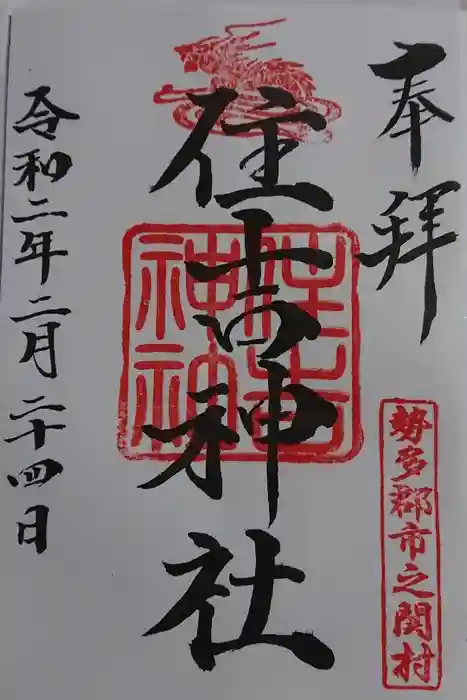 奉拝
勢多郡市之関村
住吉神社
住吉神社
令和二年二月二十四日